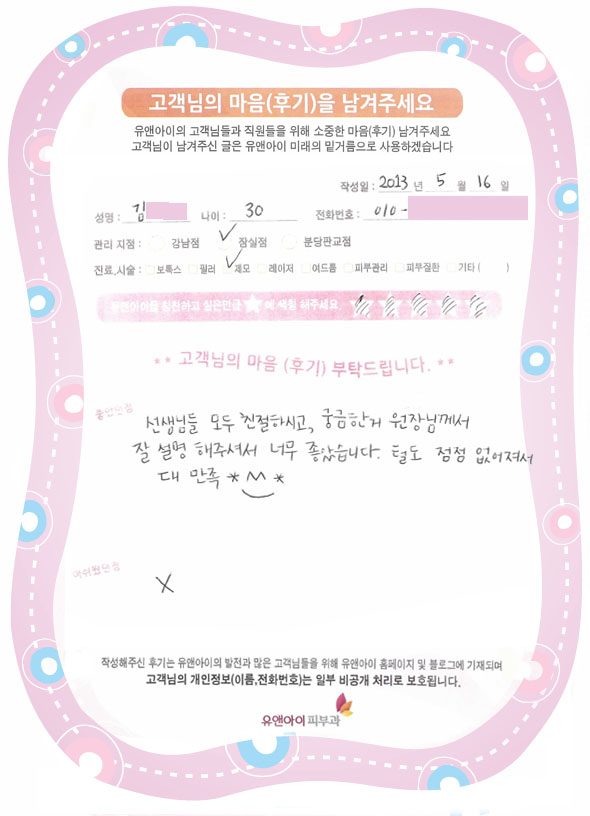 고객님의 마음(후기)을 남겨주세요
유앤아이의 고객님들과 직원들을 위해 소중한 마음(후기) 남겨주세요
고객님이 남겨주신 글은 유앤아이 미래의 밑거름으로 사용하겠습니다
작성일 : 2013 년 5 월 16 일
성명 : 김 나이 : 30 전화번호 : 010-
관리 지점 : 강남점 잠실점 분당판교점
진료,시술 : 보톡스 필러 제모 레이저 여드름 피부관리 피부질환 기타 ( )
유앤아이를 칭찬하고 싶은만큼 ★에 색칠 해주세요 ★★★★★
** 고객님의 마음 (후기) 부탁드립니다. **
좋았던점
선생님들 모두 친절하시고, 궁금한거 원장님께서
잘 설명 해주셔서 너무 좋았습니다. 털도 점점 없어져서
대 만족 *^^*
아쉬웠던점
X
작성해주신 후기는 유앤아이의 발전과 많은 고객님들을 위해 유앤아이 홈페이지 및 블로그에 기재되며
고객님의 개인정보(이름,전화번호)는 일부 비공개 처리로 보호됩니다.
유앤아이피부과